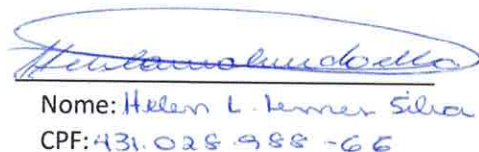 Nome: Helen L. Lemes Silva
CPF: 431.028.988-66